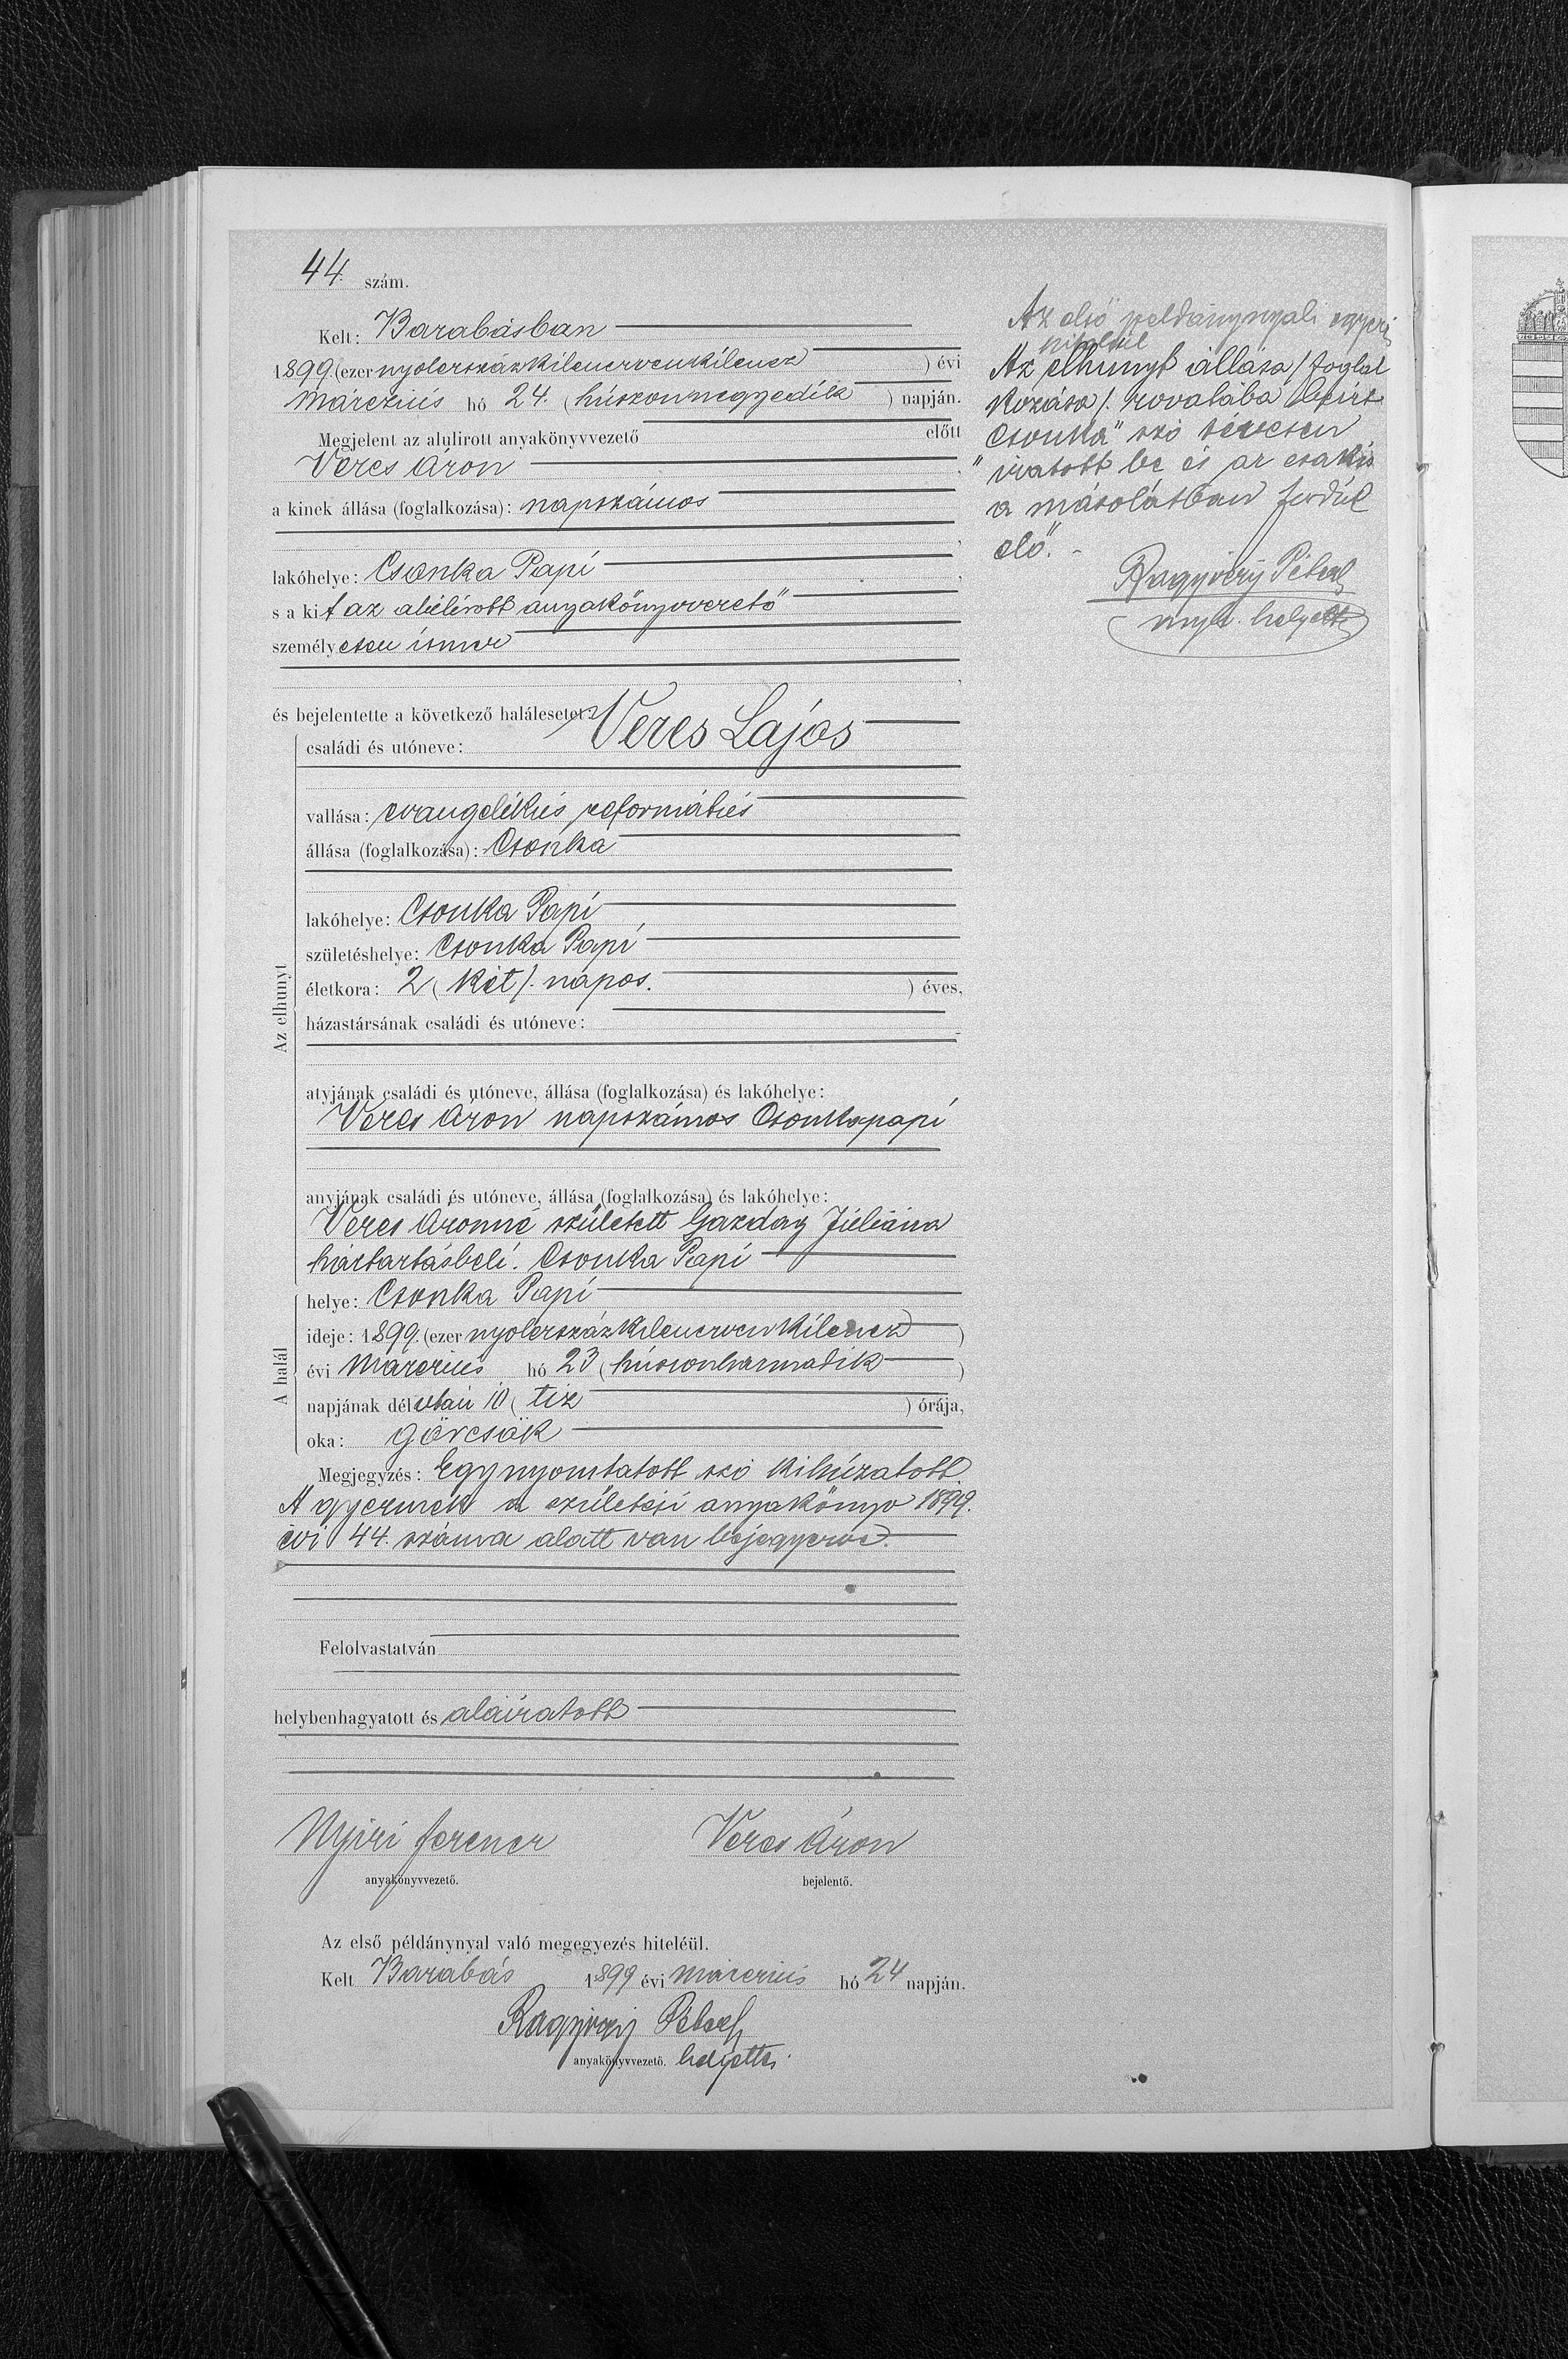 44. szám.
Kelt: Barabásban
1899. (ezer nyolczszázkilenczvenkilencz) évi
márczius hó 24. (húszonnegyedik) napján.
Megjelent az alulirott anyakönyvvezető előtt
Veres Áron
a kinek állása (foglalkozása): napszámos
lakóhelye: Csonka Papi
s a kit az alúlirott anyakönyvvezető
személyesen ismer
és bejelentette a következő halálesetet:
családi és utóneve: Veres Lajos
vallása: evangelikús reformátús
állása (foglalkozása): Csonka
lakóhelye: Csonka Papi
születéshelye: Csonka Papi
életkora: 2 (két). napos. ) éves,
házastársának családi és utóneve:
Az elhunyt
atyjának családi és utóneve, állása (foglalkozása) és lakóhelye:
Veres Áron napszámos Csonkapapi
anyjának családi és utóneve, állása (foglalkozása) és lakóhelye:
Veres Áronné született Gazdag Júliána
háztartásbeli. Csonka Papi
helye: Csonka Papi
ideje: 1899. (ezer nyolczszázkilenczvenkilencz)
évi márczius hó 23 (húszonharmadik)
A halál
napjának délután 10 (tiz ) órája,
oka: görcsök
Megjegyzés: Egy nyomtatott szó kihúzatott
A gyermek a születési anyakönyv 1899.
évi 44. száma alatt van bejegyezve.
Felolvastatván
helybenhagyatott és aláiratott
Nyiri Ferencz Veres Áron
anyakönyvvezető. bejelentő.
Az első példánynyal való megegyezés hiteléül.
Kelt Barabás 1899 évi márczius hó 24 napján.
Péter
anyakönyvvezető. helyettes.
Az első példánynyali
Az elhunyt állása /foglal
kozása/. rovatába beirt
Csonka" szó tévesen
"iratott be és az csakis
a másolatban fordúl
elő". -
Péter
helyettes